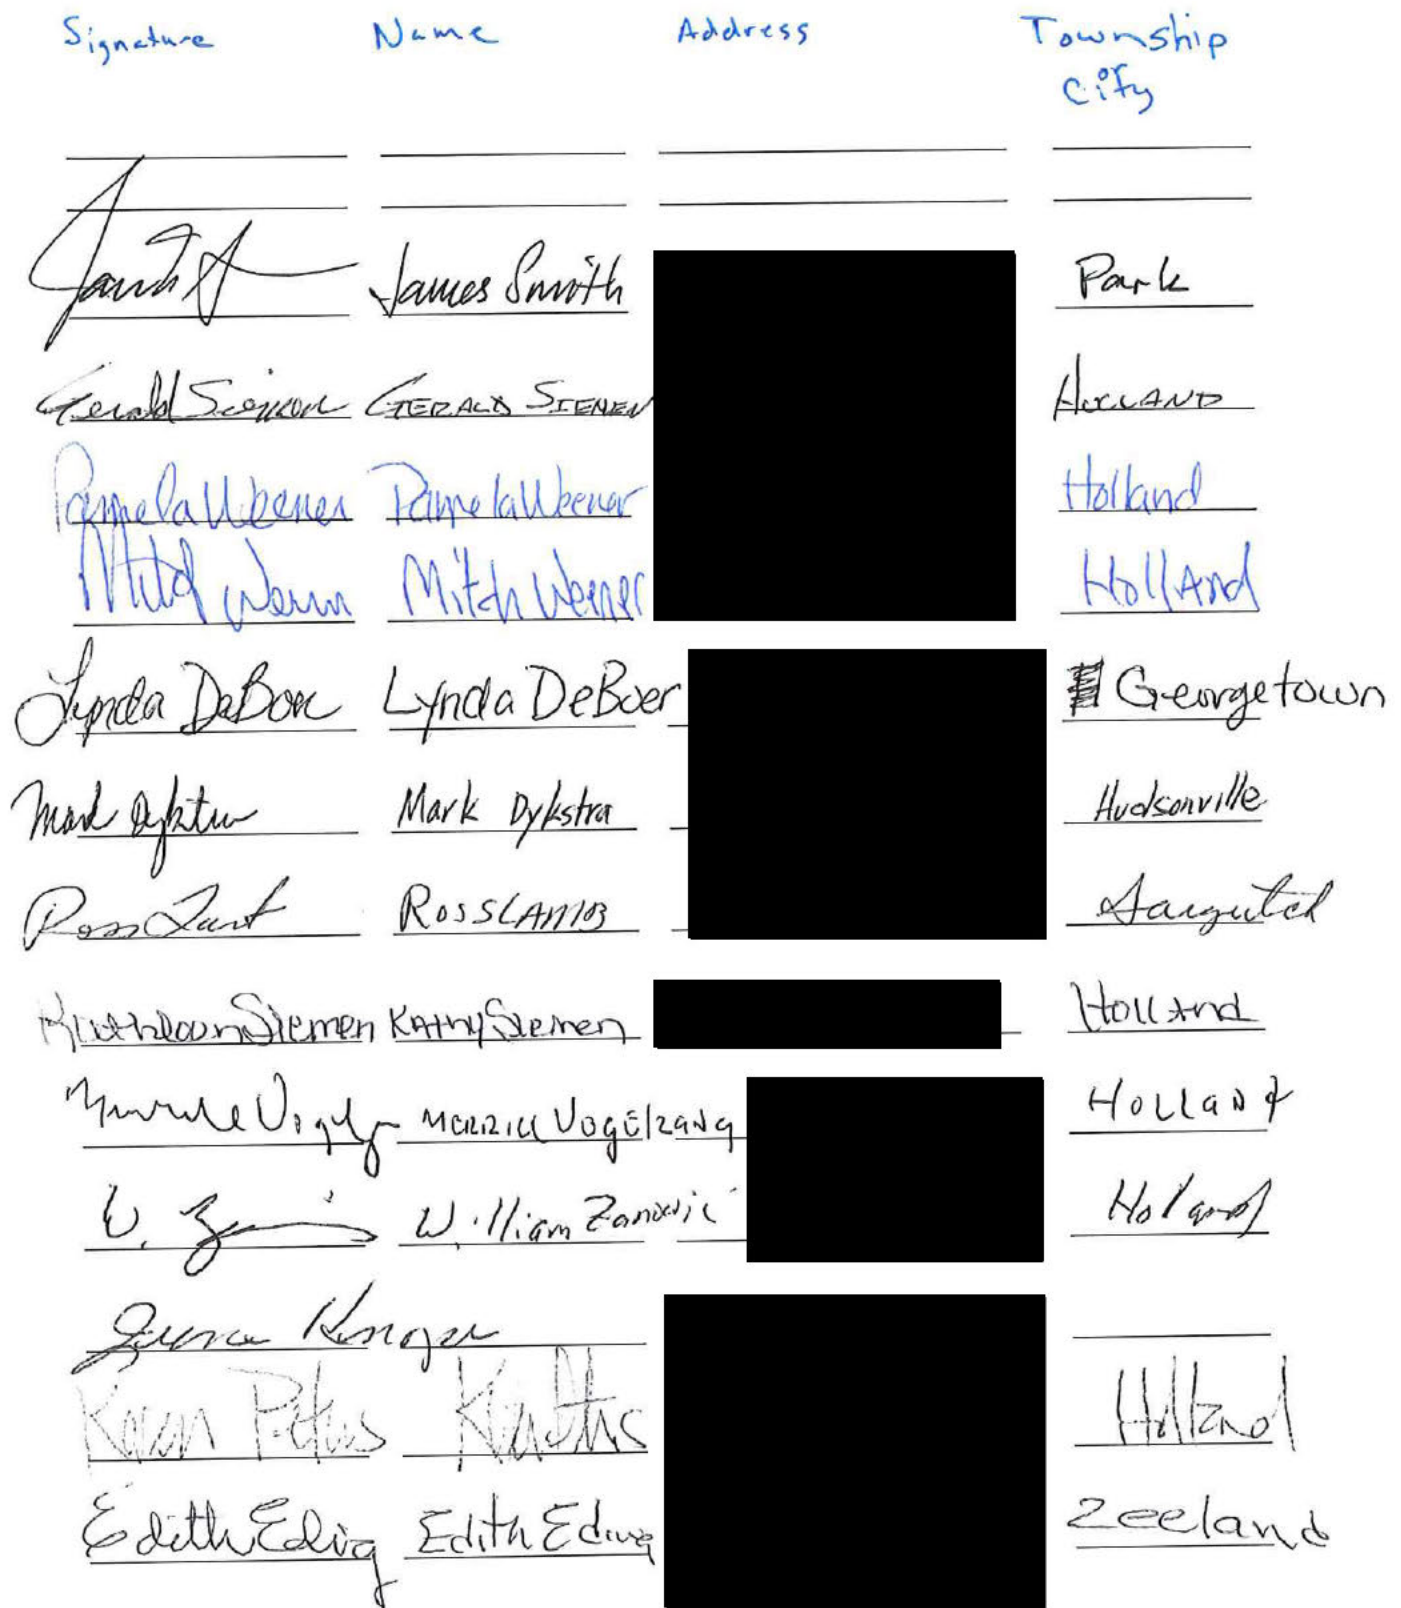 Signature Name Address Township
or
City
James Smith Park
Gerald Siemen GERALD SIEMEN HOLLAND
Pamela Weener Pamela Weener Holland
Mitch Weener Mitch Weener Holland
Lynda DeBoer Lynda DeBoer Georgetown
Mark Dykstra Mark Dykstra Hudsonville
Ross ROSS
Kathleen Siemen Kathy Siemen Holland
Merrill Vogelzang HOLLAND
W. William Holland
Karen Peters Holland
Edith Eding Edith Eding Zeeland